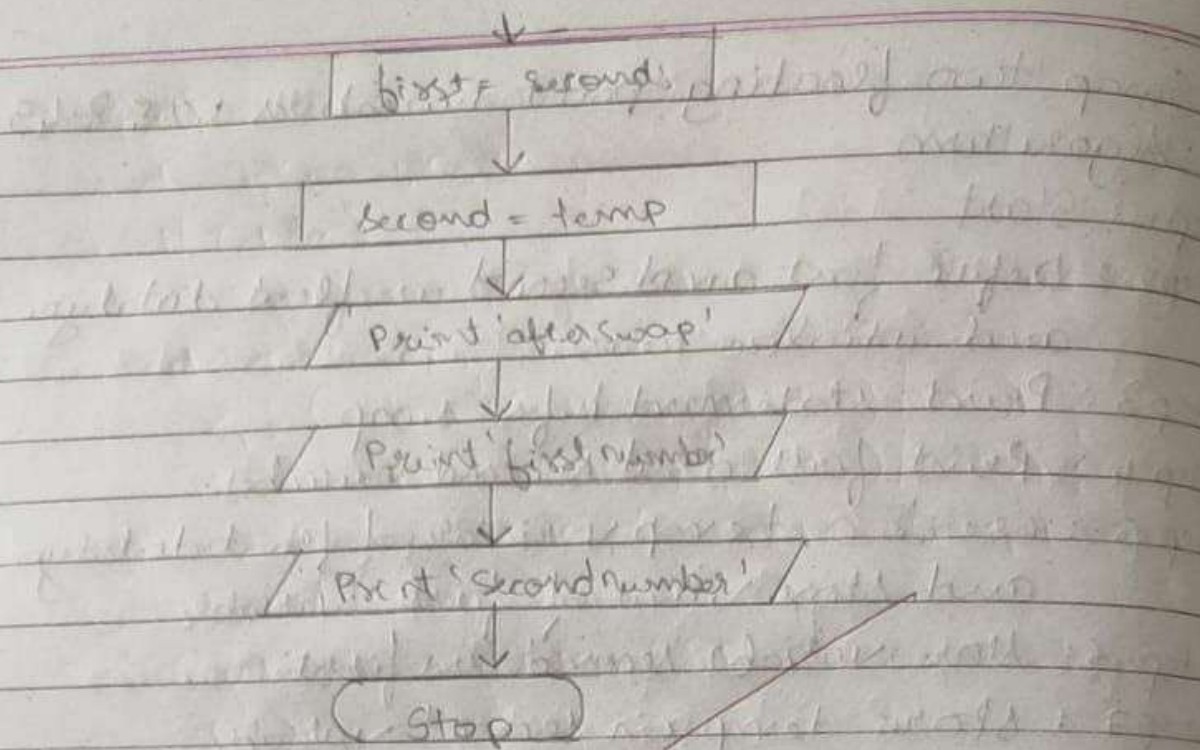 first = second
second = temp
Print 'after swap'
Print 'first number'
Print 'second number'
Stop